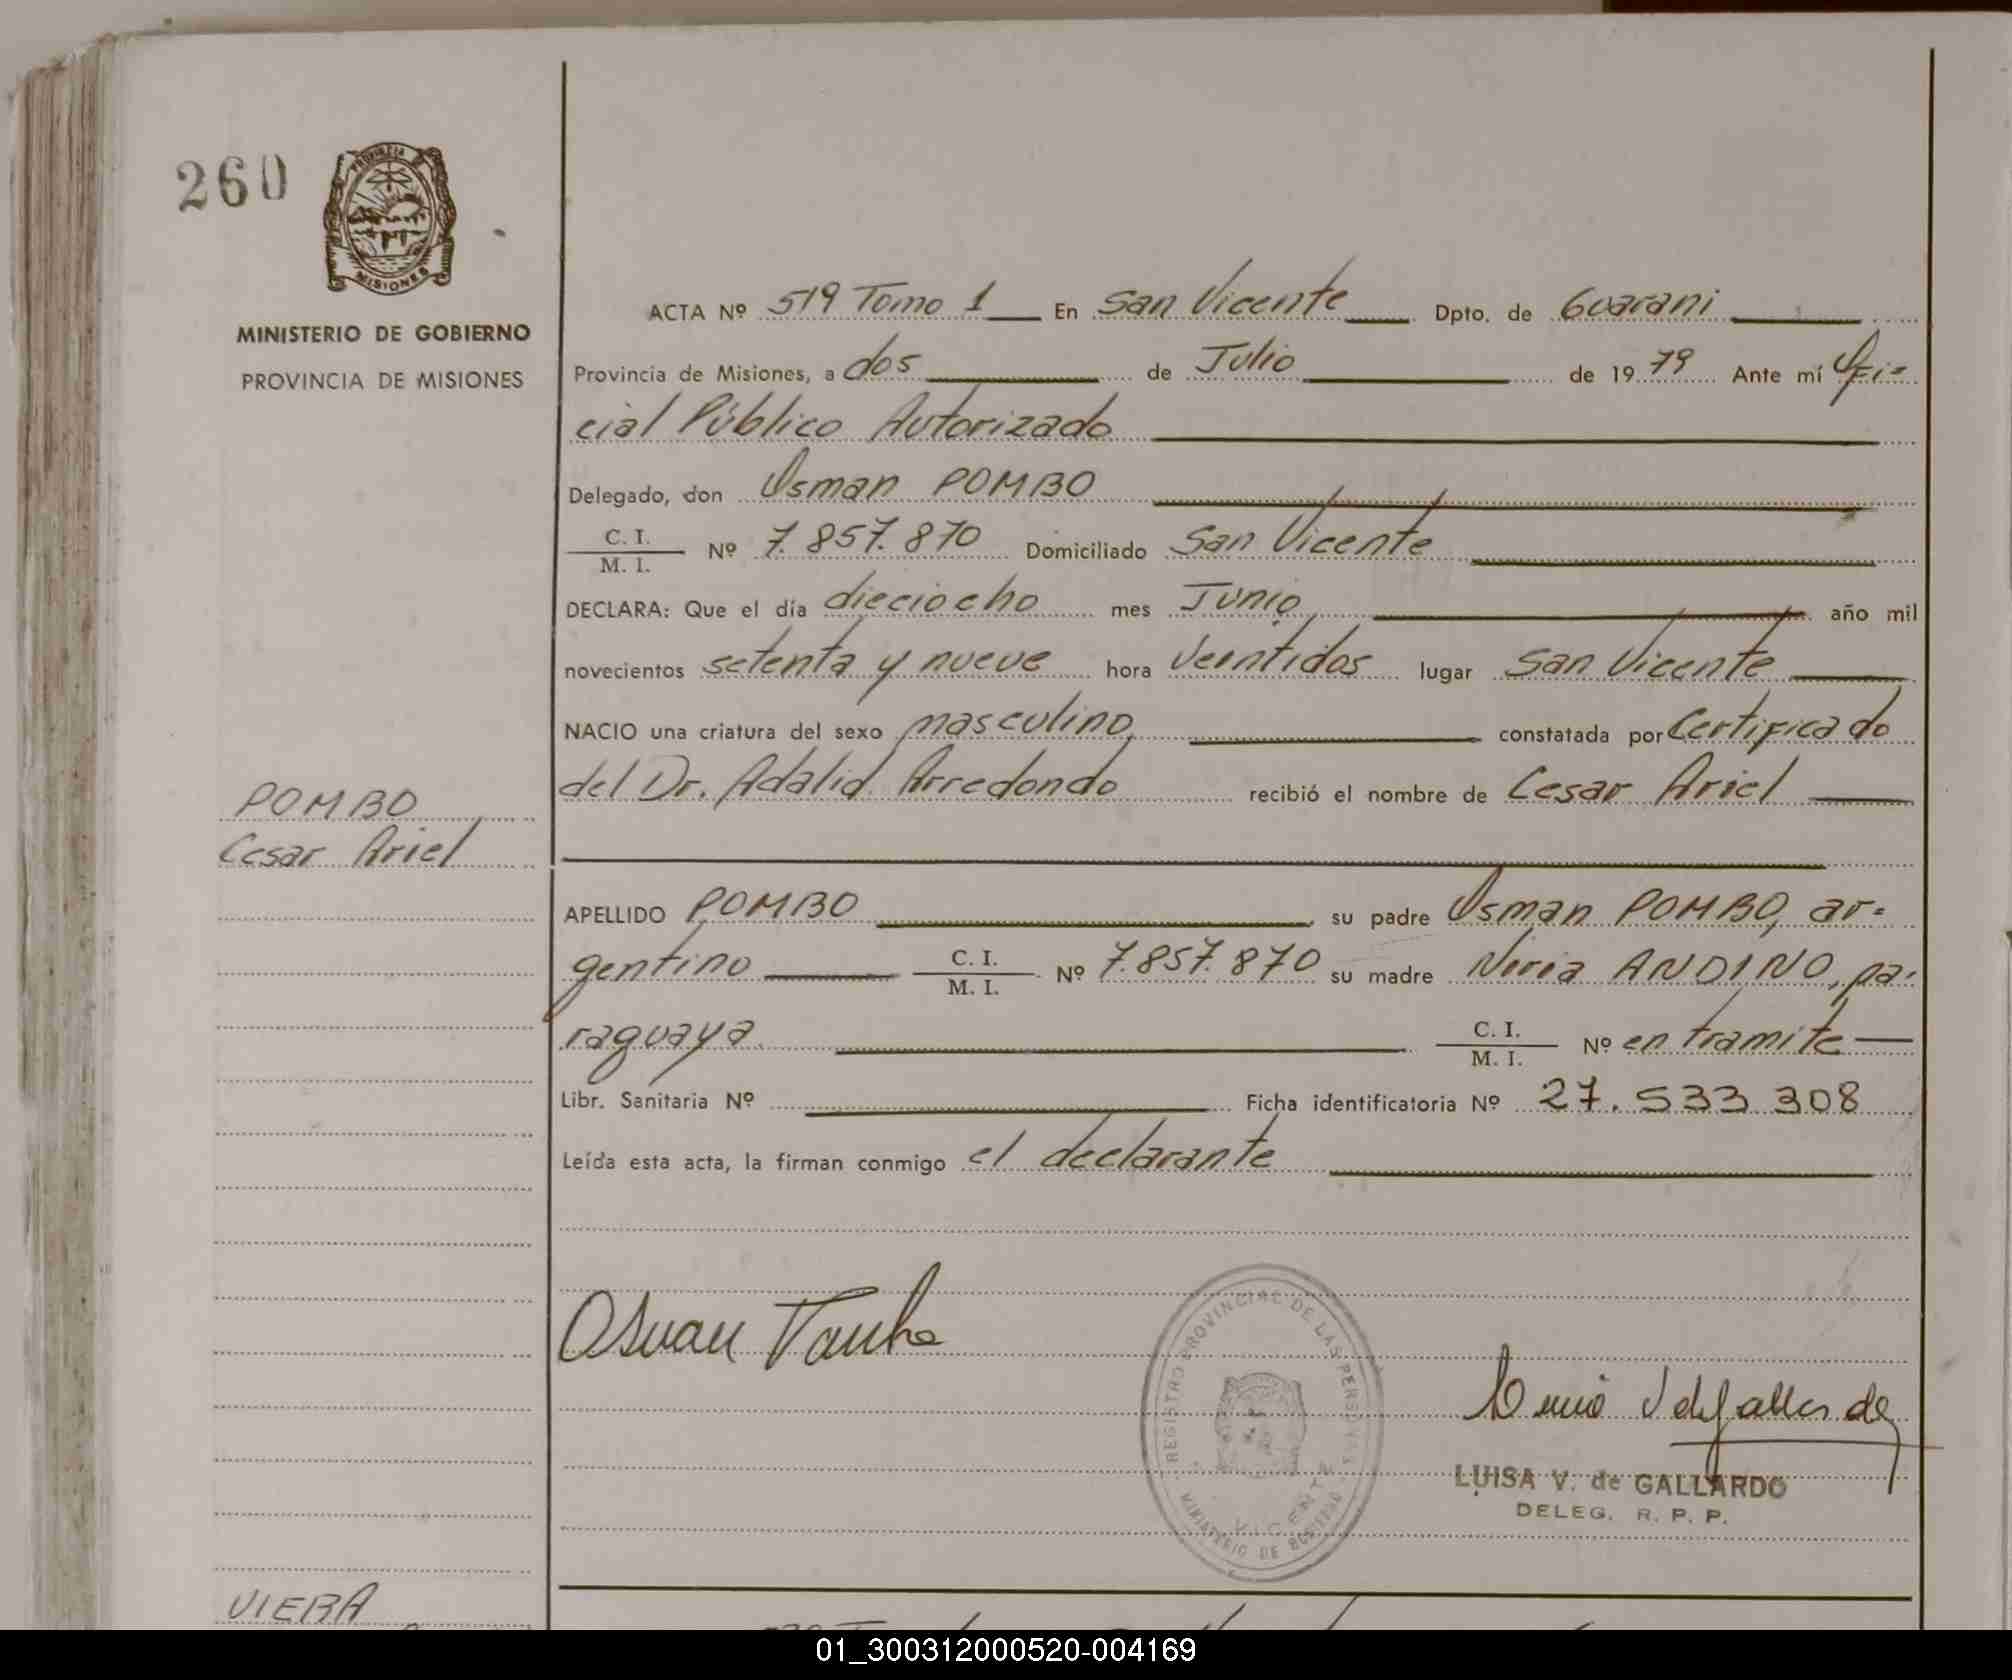 260
PROVINCIA
MISIONES
MINISTERIO DE GOBIERNO
PROVINCIA DE MISIONES
ACTA Nº 519 Tomo 1 En San Vicente Dpto. de Guarani
Provincia de Misiones, a dos de Julio de 1979 Ante mí Ofi-
cial Público Autorizado
Delegado, don Osman POMBO
C. I.
M. I. Nº 7.857.870 Domiciliado San Vicente
DECLARA: Que el día dieciocho mes Junio año mil
novecientos setenta y nueve hora veintidos lugar San Vicente
NACIO una criatura del sexo masculino constatada por Certificado
del Dr. Adalid Arredondo recibió el nombre de Cesar Ariel
POMBO
Cesar Ariel
APELLIDO POMBO su padre Osman POMBO, ar-
gentino C. I.
M. I. Nº 7.857.870 su madre Niria ANDINO, pa-
raguaya C. I.
M. I. Nº en tramite
Libr. Sanitaria Nº Ficha identificatoria Nº 27.533 308
Leída esta acta, la firman conmigo el declarante
REGISTRO PROVINCIAL DE LAS PERSONAS
VICENTE
MINISTERIO DE GOBIERNO
LUISA V. de GALLARDO
DELEG. R. P. P.
VIERA
01_300312000520-004169